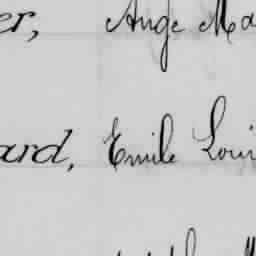 er, Ange Ma
ard, Emile Loui